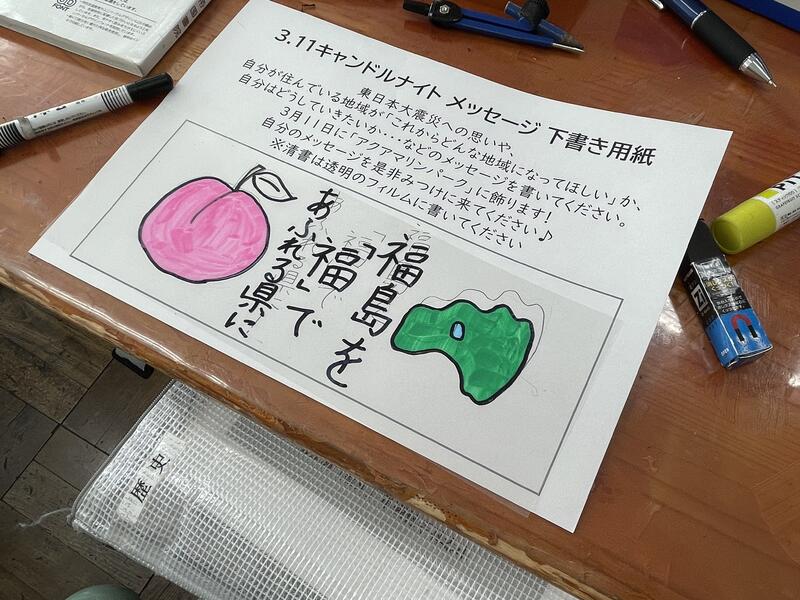 3.11キャンドルナイト メッセージ 下書き用紙
東日本大震災への思いや、
自分が住んでいる地域が「これからどんな地域になってほしい」か、
自分はどうしていきたいか・・・などのメッセージを書いてください。
3月11日に「アクアマリンパーク」に飾ります!
自分のメッセージを是非みつけに来てください♪
※清書は透明のフィルムに書いてください
福島を
「福」で
あふれる県に
歴史